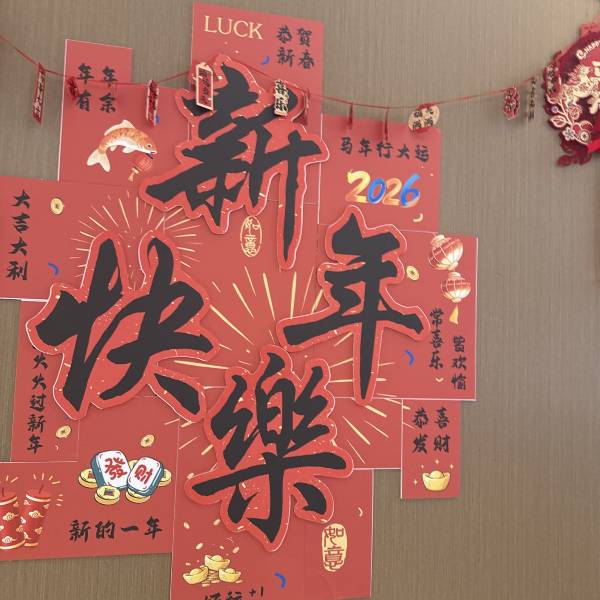 LUCK
恭贺
新春
年年
有余
新
马年行大运
2026
大吉大利
如意
年
快
常喜乐
皆欢愉
火火过新年
樂
恭喜
发财
發财
新的一年
如意
好运+1